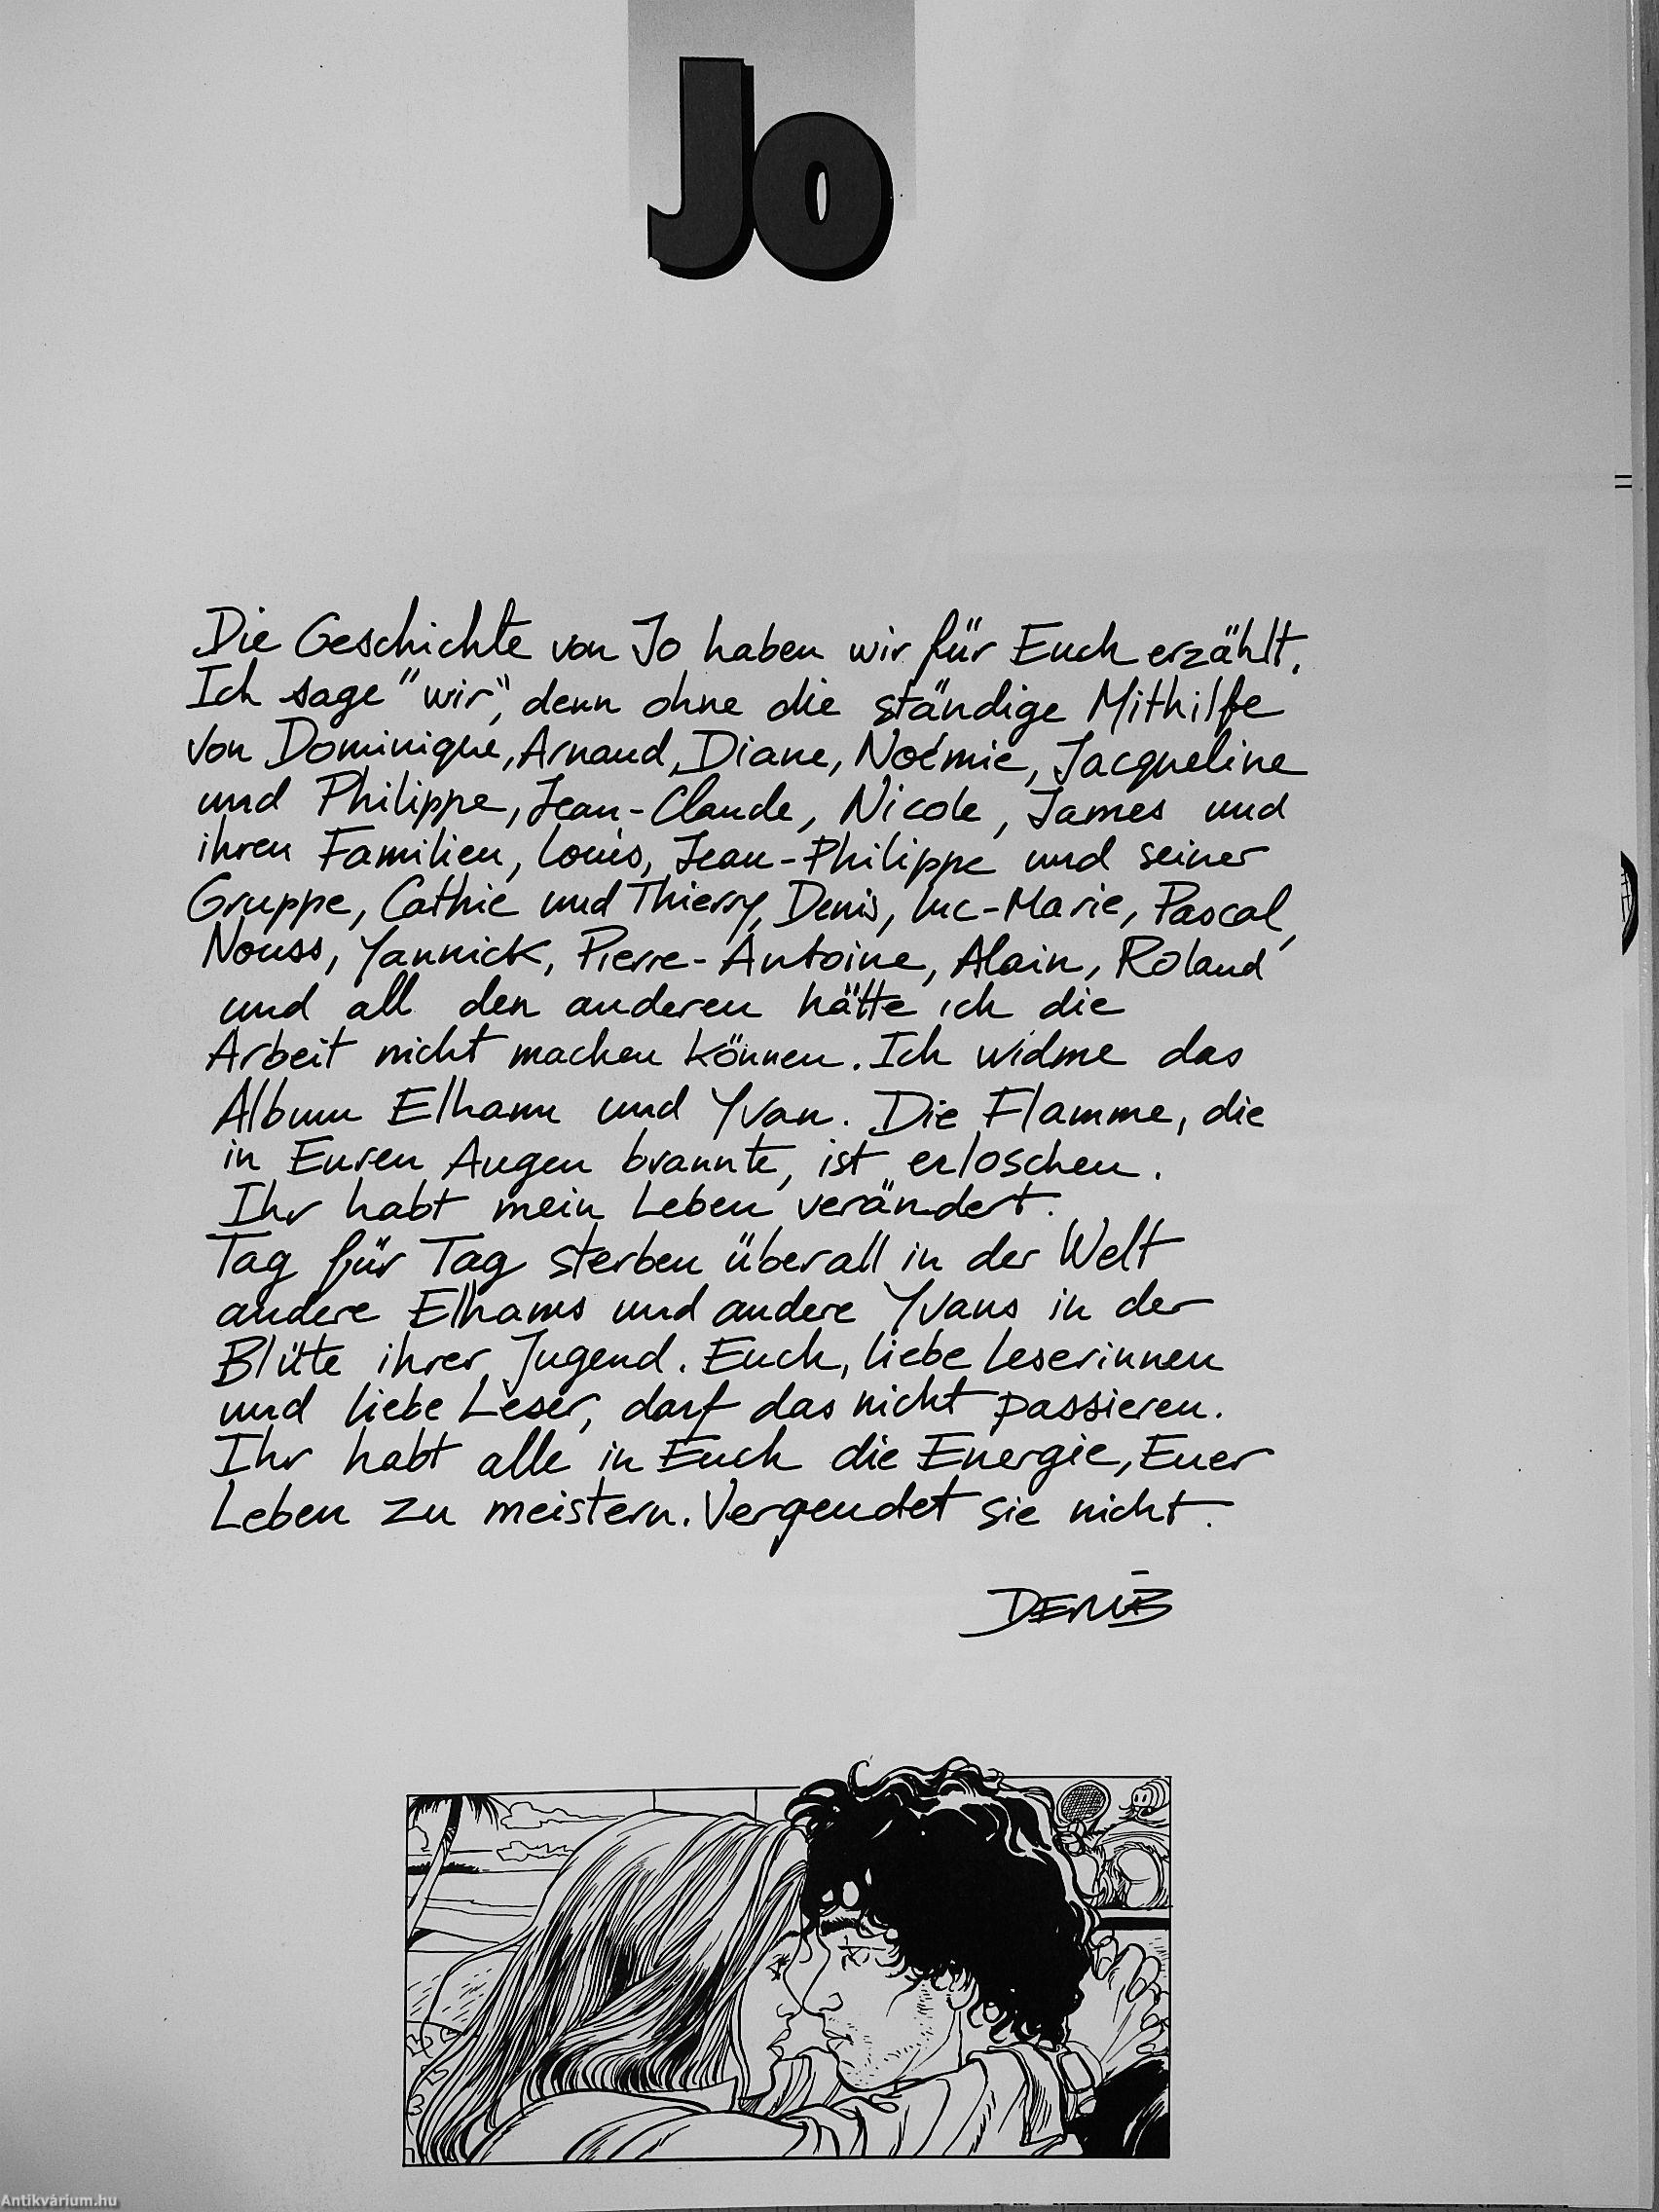 Jo
Die Geschichte von Jo haben wir für Euch erzählt.
Ich sage "wir", denn ohne die ständige Mithilfe
von Dominique, Arnaud, Diane, Noémie, Jacqueline
und Philippe, Jean-Claude, Nicole, James und
ihren Familien, Louis, Jean-Philippe und seiner
Gruppe, Cathie und Thierry, Denis, Luc-Marie, Pascal,
Nouss, Yannick, Pierre-Antoine, Alain, Roland
und all den anderen hätte ich die
Arbeit nicht machen können. Ich widme das
Album Elham und Yvan. Die Flamme, die
in Euren Augen brannte, ist erloschen.
Ihr habt mein Leben verändert.
Tag für Tag sterben überall in der Welt
andere Elhams und andere Yvans in der
Blüte ihrer Jugend. Euch, liebe Leserinnen
und liebe Leser, darf das nicht passieren.
Ihr habt alle in Euch die Energie, Euer
Leben zu meistern. Vergeudet sie nicht.
DERIB
Antikvárium.hu